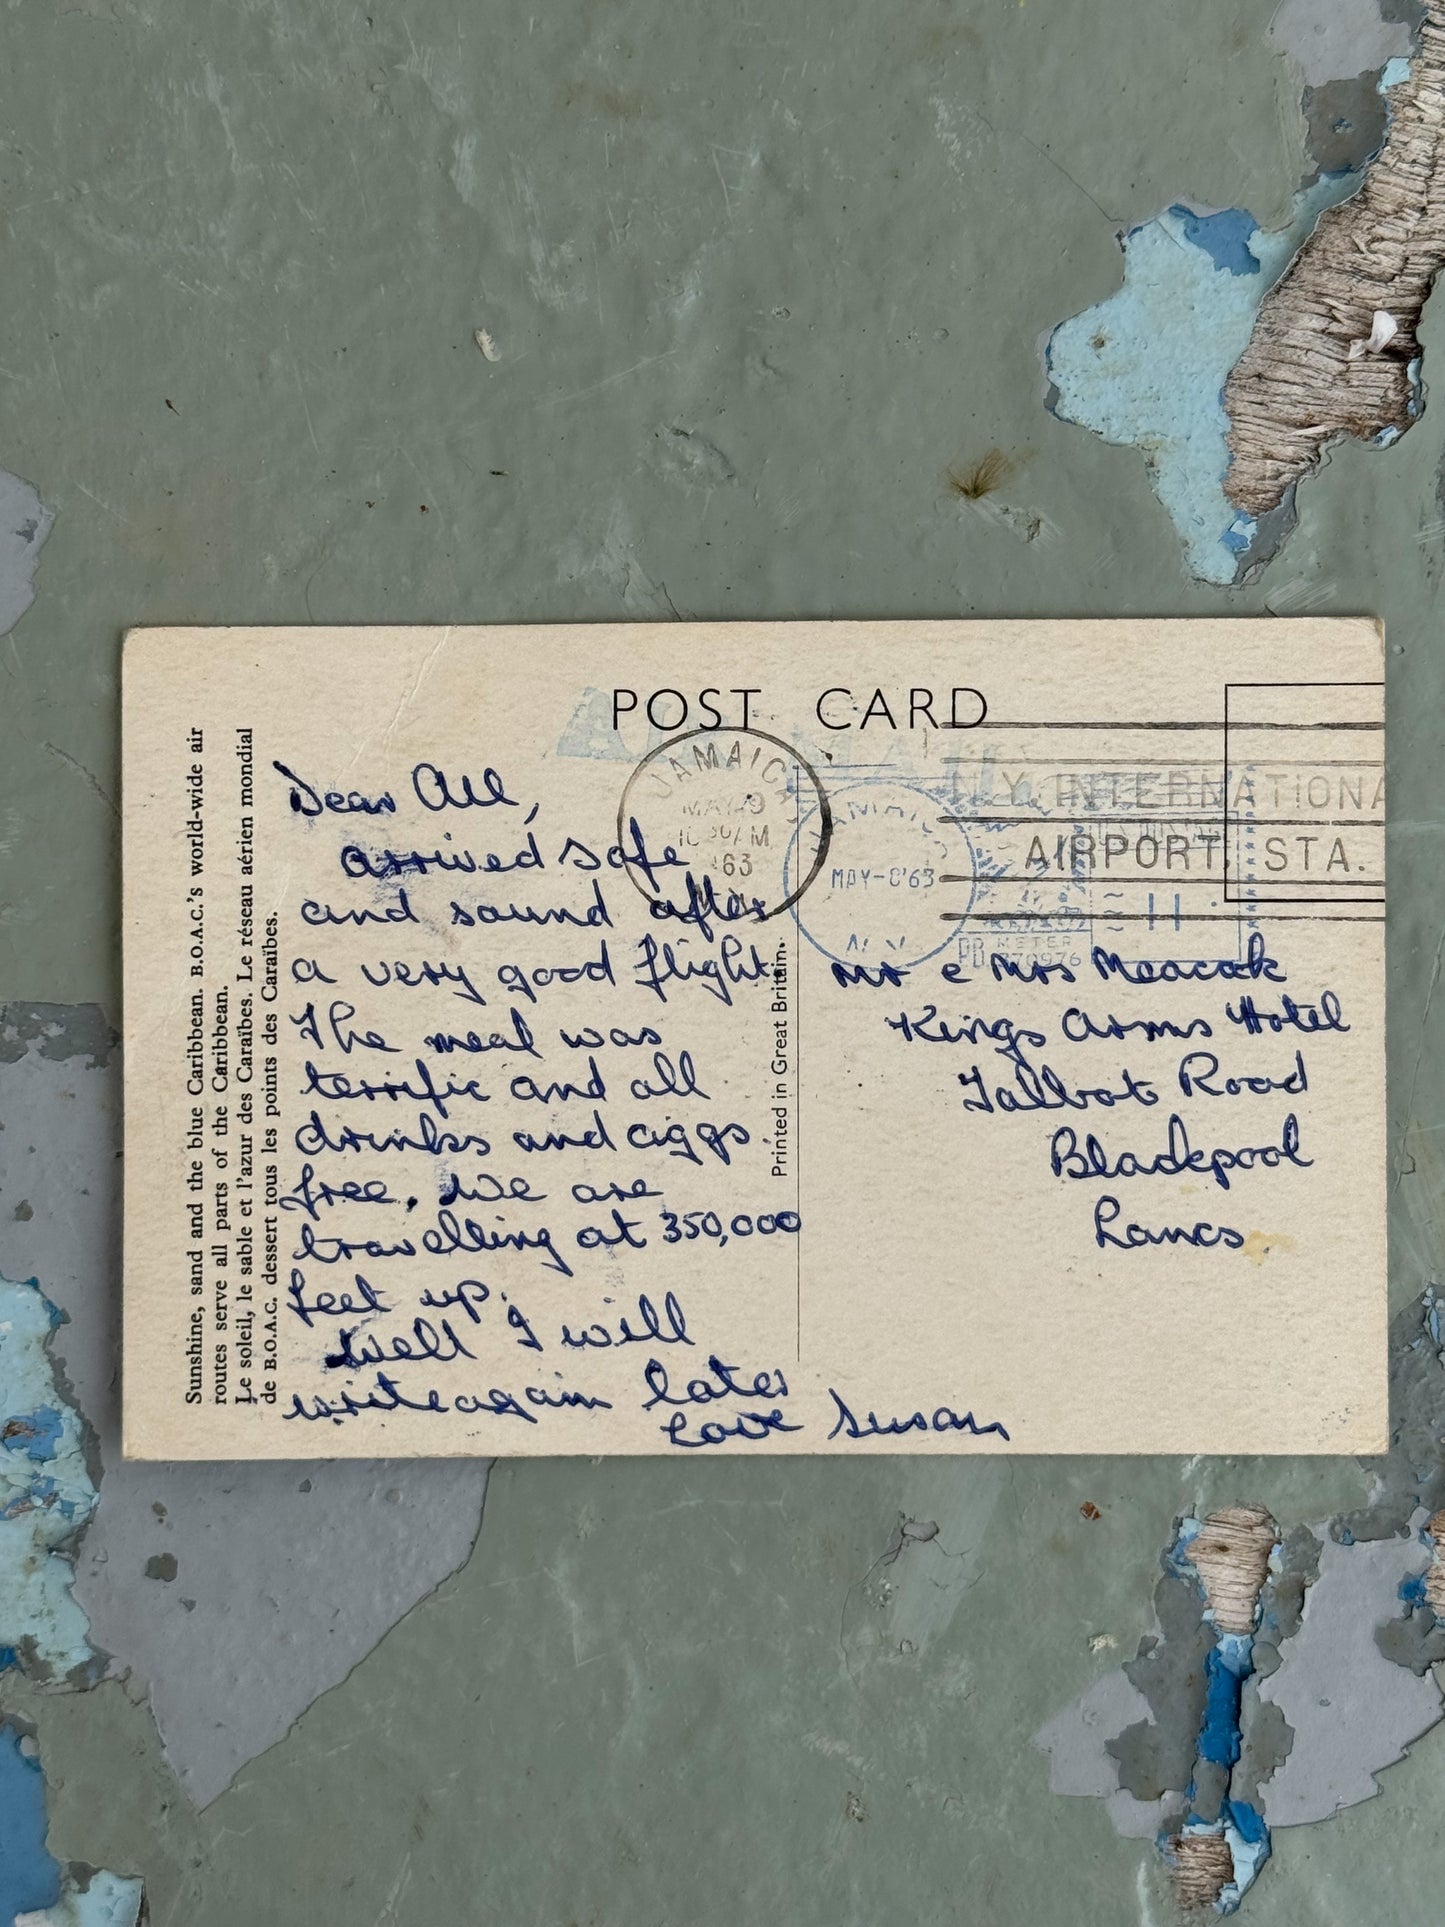 POST CARD
Sunshine, sand and the blue Caribbean. B.O.A.C.'s world-wide air
routes serve all parts of the Caribbean.
Le soleil, le sable et l'azur des Caraïbes. Le réseau aérien mondial
de B.O.A.C. dessert tous les points des Caraïbes.
Dear All,
arrived safe
and sound after
a very good flight.
The meal was
terrific and all
drinks and ciggs.
free. We are
travelling at 350,000
feet up.
Well I will
write again later
Love Susan
Printed in Great Britain.
JAMAICA
MAY 9
10 30 AM
'63
N.Y. INTERNATIONA
AIRPORT, STA.
JAMAICA
MAY-8'63
N.Y.
PB METER
Mr & Mrs Meacock
Kings Arms Hotel
Talbot Road
Blackpool
Lancs